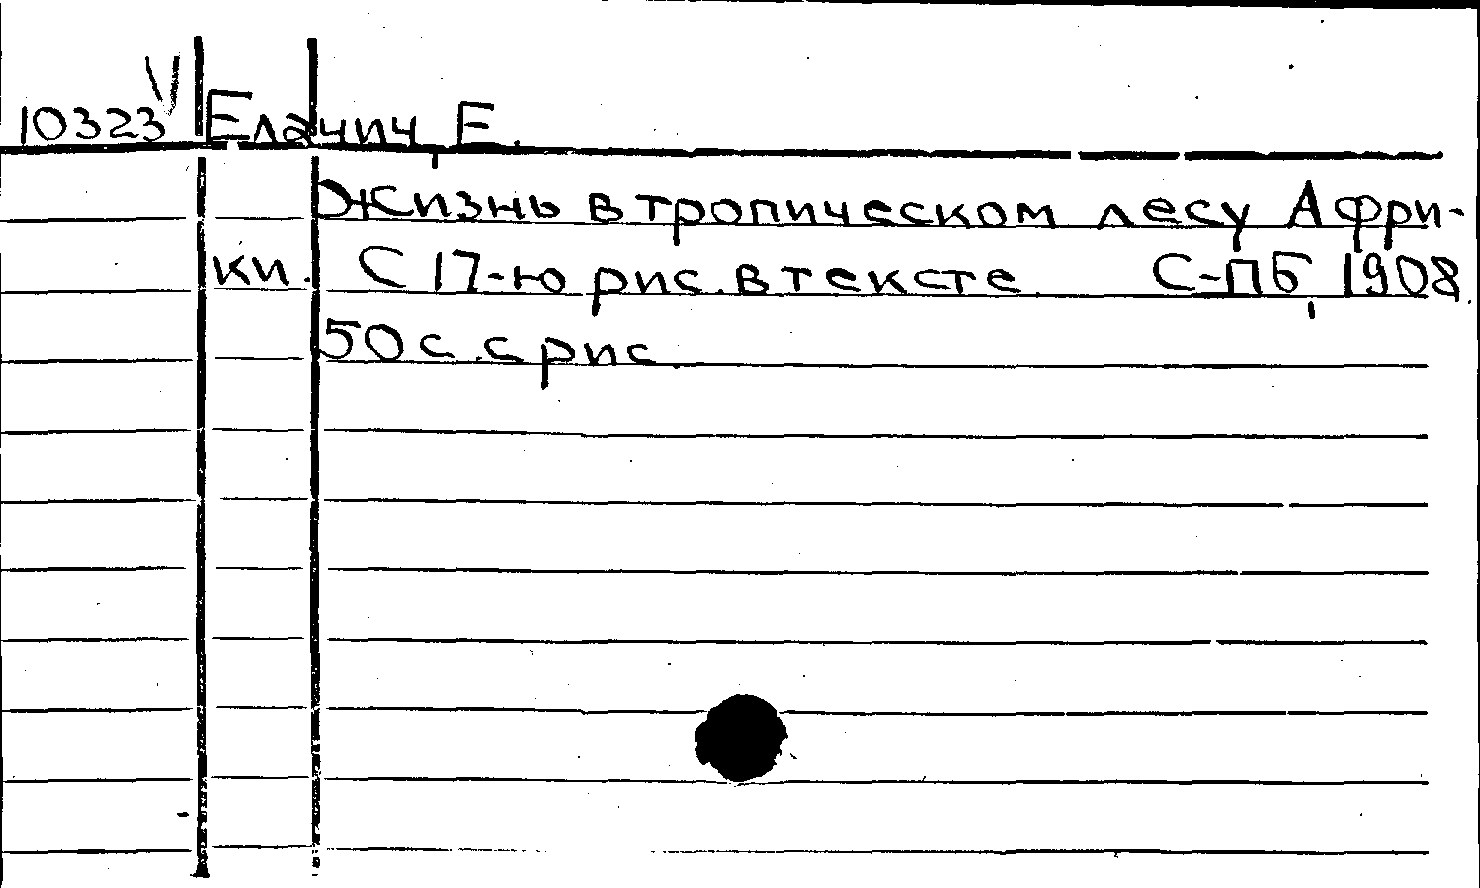 10323 Елачич, Е.
Жизнь в тропическом лесу Афри-
ки. С 17-ю рис. в тексте. С-ПБ, 1908.
50 с. с рис.